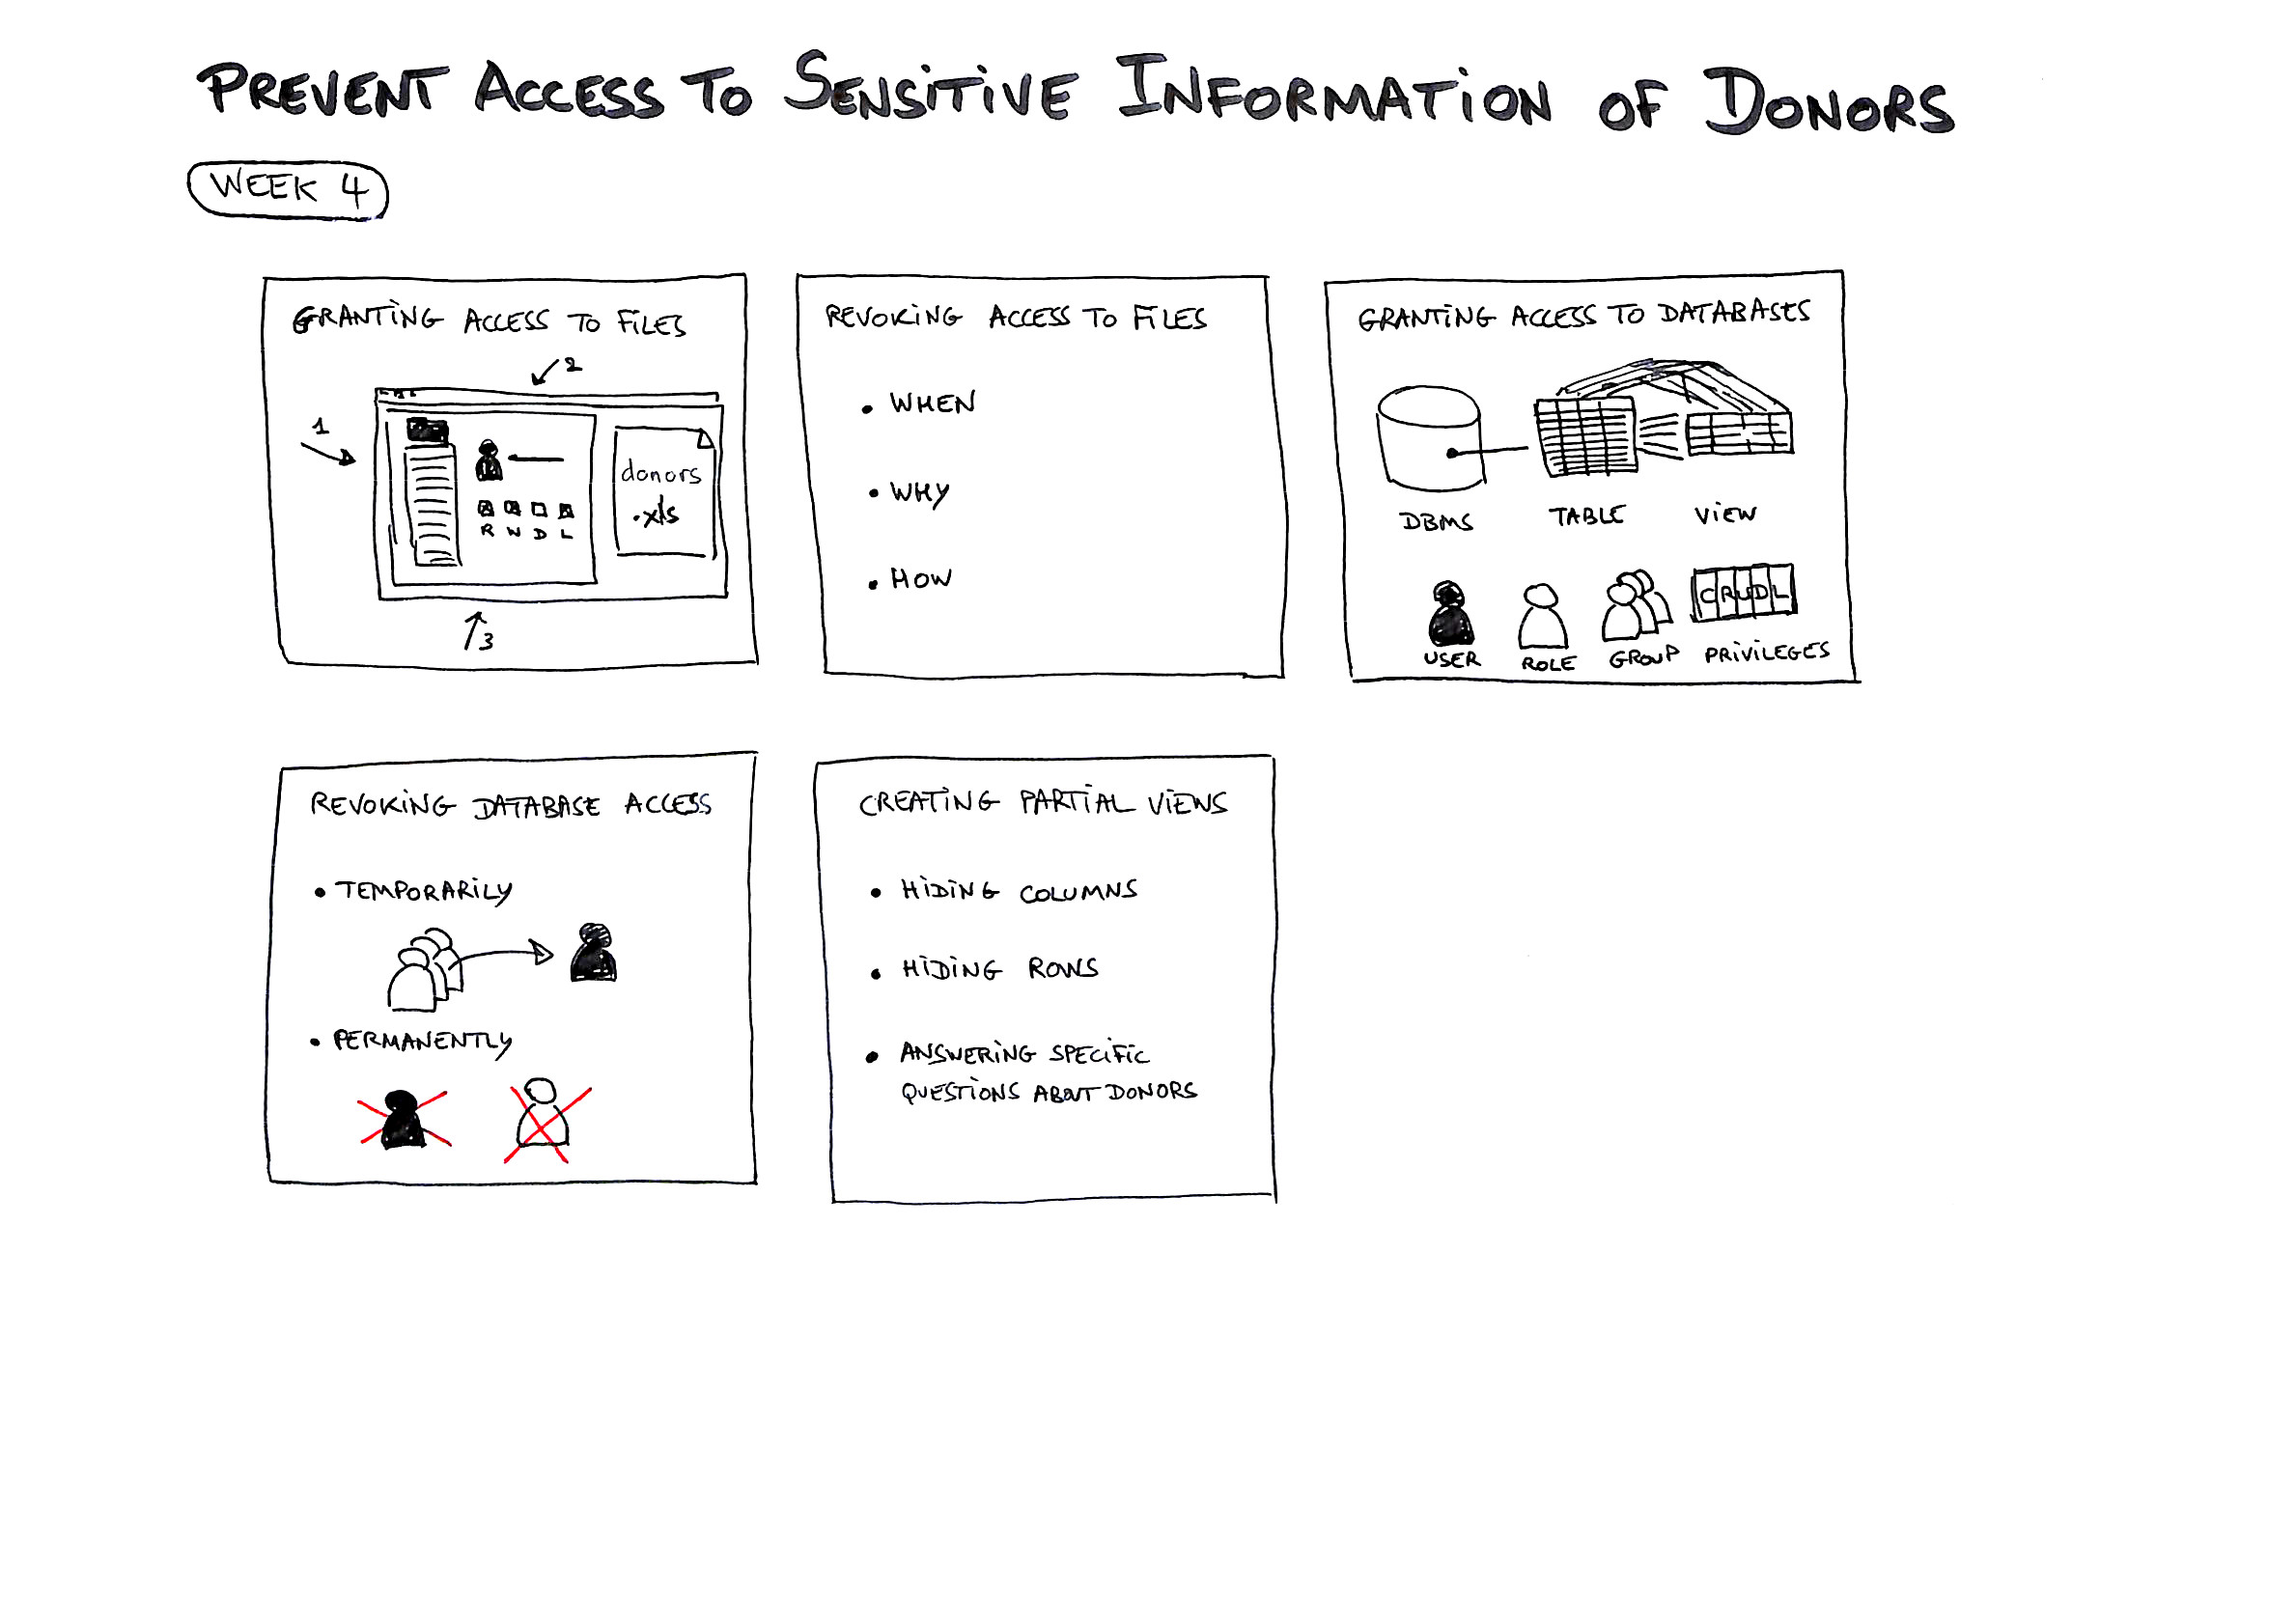 PREVENT ACCESS TO SENSITIVE INFORMATION OF DONORS
WEEK 4
GRANTING ACCESS TO FILES
1
2
donors
.xls
R W D L
3
REVOKING ACCESS TO FILES
• WHEN
• WHY
• HOW
GRANTING ACCESS TO DATABASES
DBMS TABLE VIEW
CRUDL
USER ROLE GROUP PRIVILEGES
REVOKING DATABASE ACCESS
• TEMPORARILY
• PERMANENTLY
CREATING PARTIAL VIEWS
• HIDING COLUMNS
• HIDING ROWS
• ANSWERING SPECIFIC
QUESTIONS ABOUT DONORS